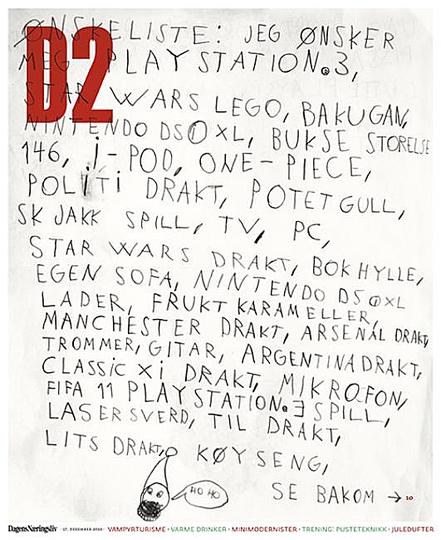 D2
ØNSKELISTE: JEG ØNSKER
MEG PLAYSTATION.3,
STAR WARS LEGO, BAKUGAN,
NINTENDO DSI XL, BUKSE STORELSE
146, i-POD, ONE-PIECE,
POLITI DRAKT, POTETGULL,
SKJAKK SPILL, TV, PC,
STAR WARS DRAKT, BOKHYLLE,
EGEN SOFA, NINTENDO DSI XL
LADER, FRUKT KARAMELLER,
MANCHESTER DRAKT, ARSENAL DRAKT,
TROMMER, GITAR, ARGENTINA DRAKT,
CLASSIC XI DRAKT, MIKROFON,
FIFA 11 PLAYSTATION.3 SPILL,
LASERSVERD, TIL DRAKT,
LITS DRAKT, KØYSENG,
HO HO
SE BAKOM → 10
DagensNæringsliv 17. DESEMBER 2010 · VAMPYRTURISME · VARME DRINKER · MINIMODERNISTER · TRENING: PUSTETEKNIKK · JULEDUFTER